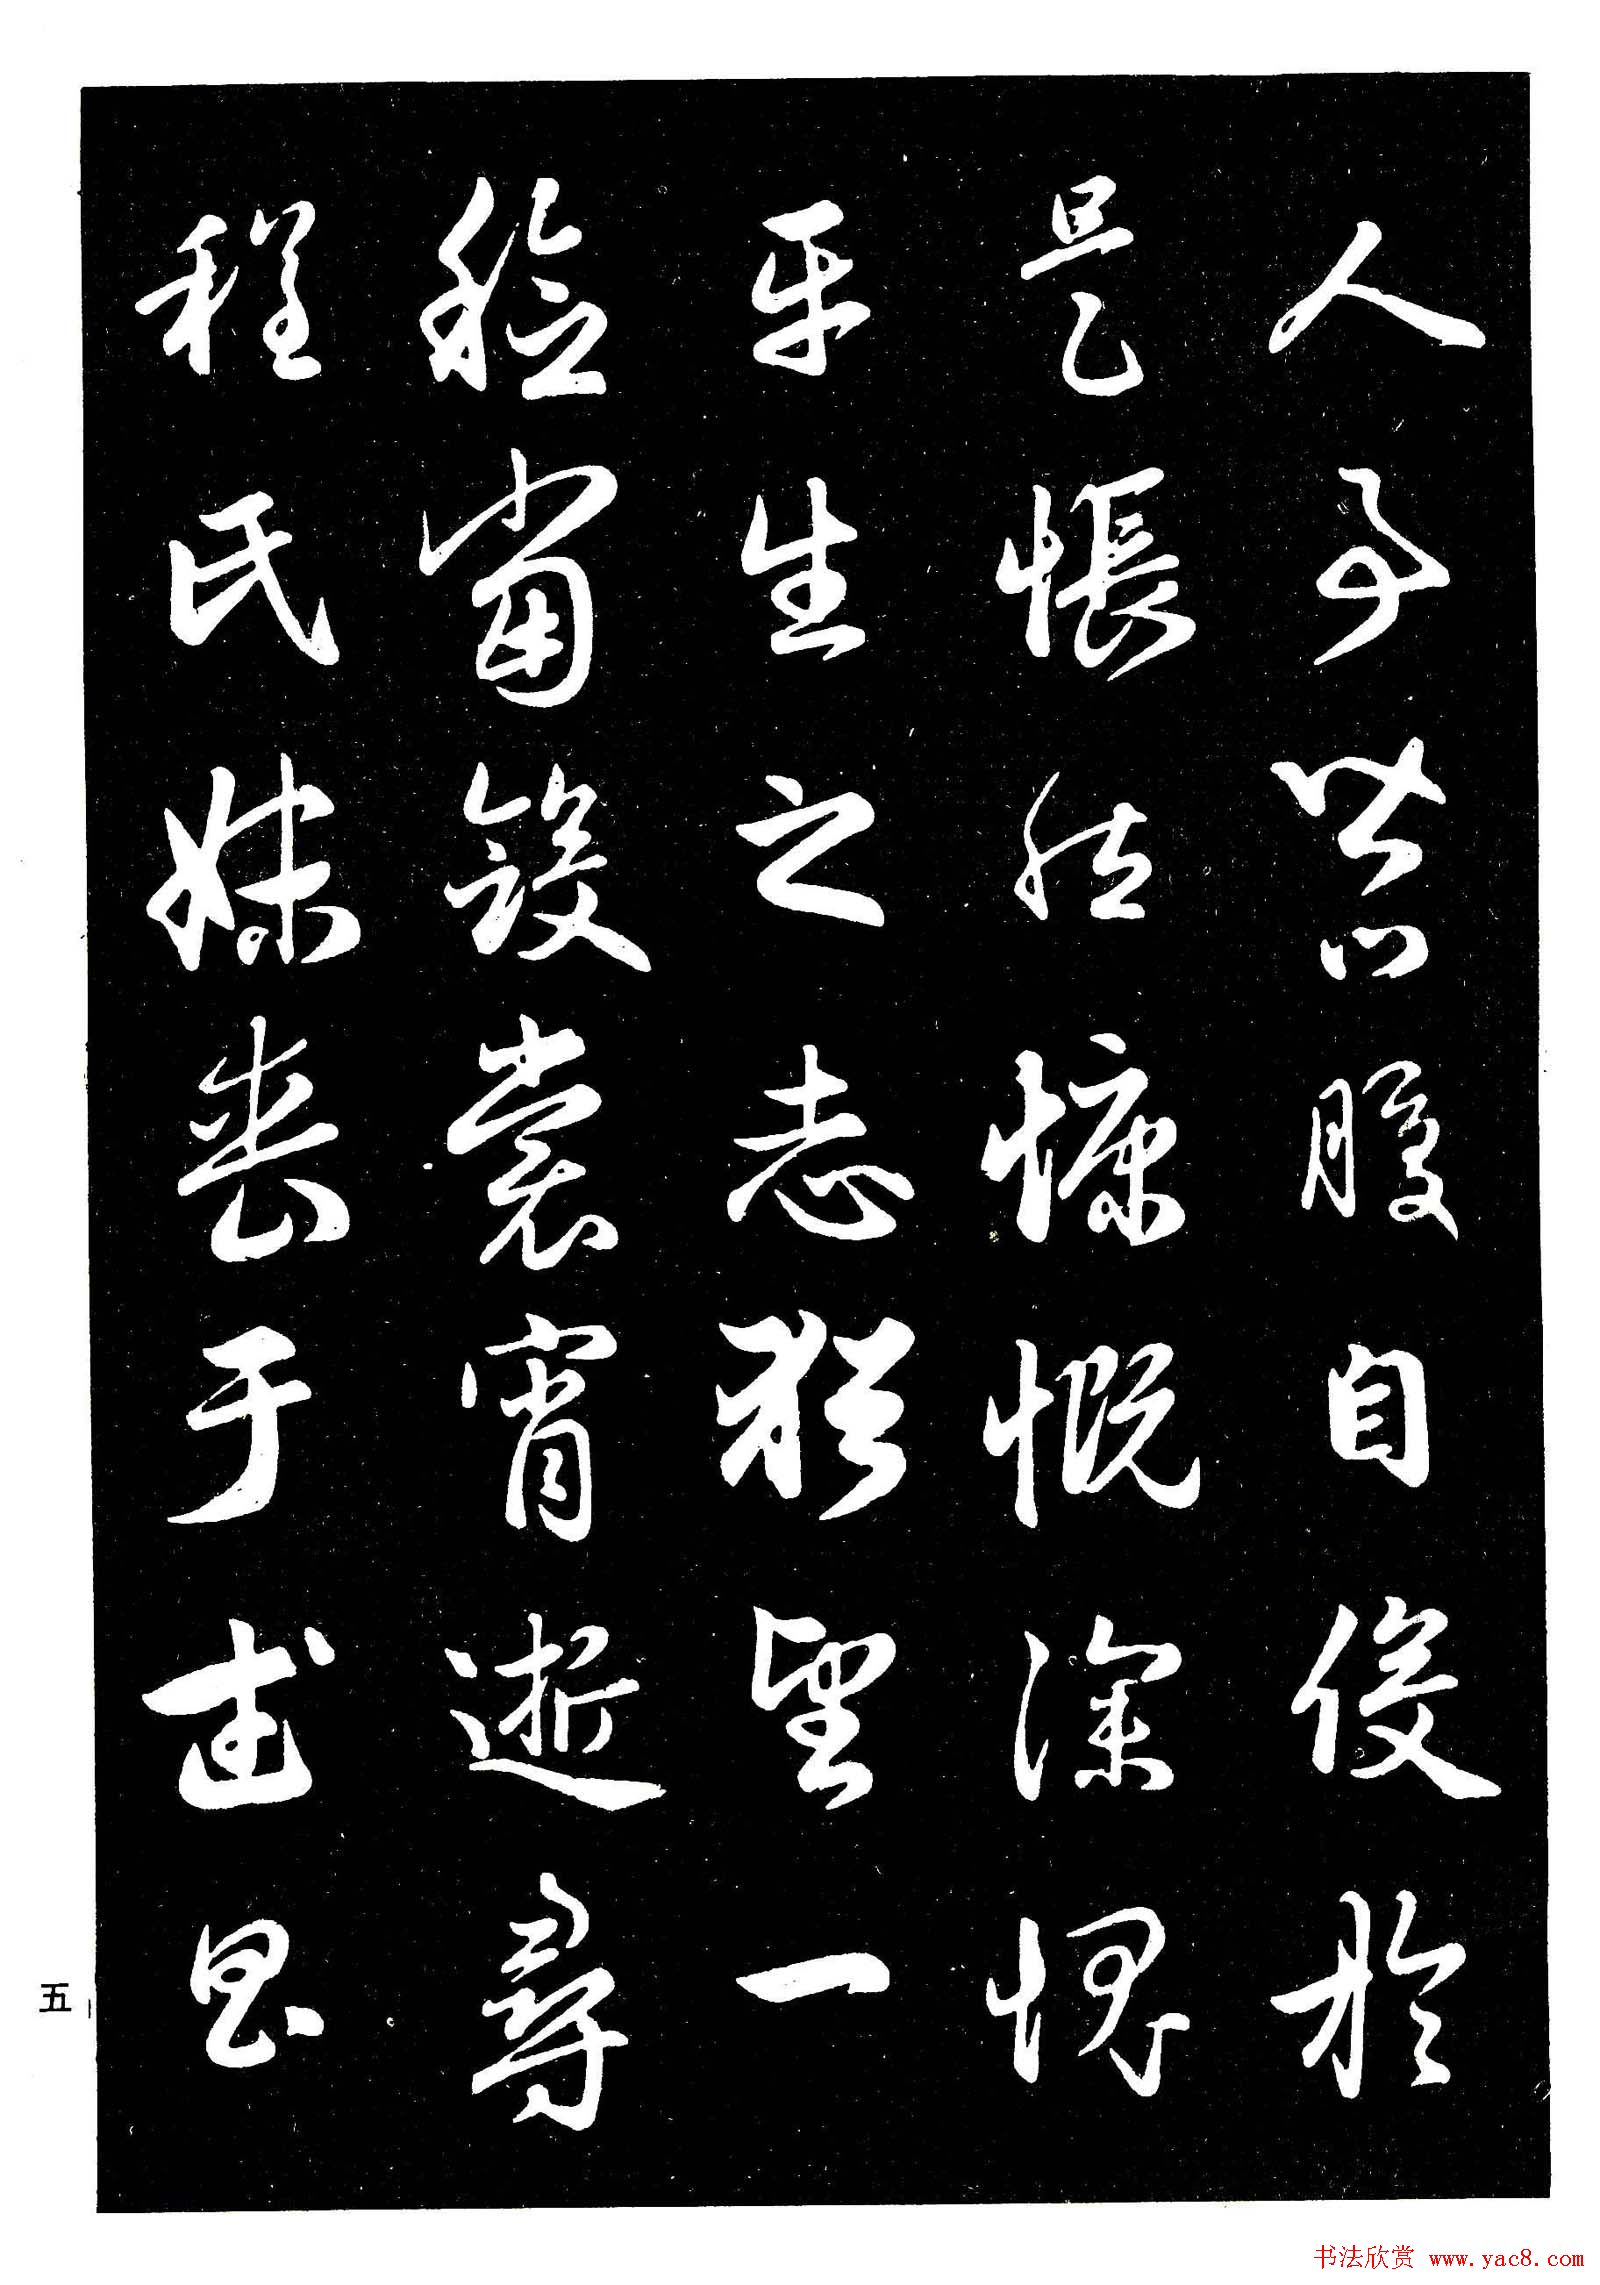 人事皆口腹自役於
是悵然慷慨深愧
平生之志猶望一
稔當斂裳宵逝尋
程氏妹喪于武昌
五
书法欣赏 www.yac8.com